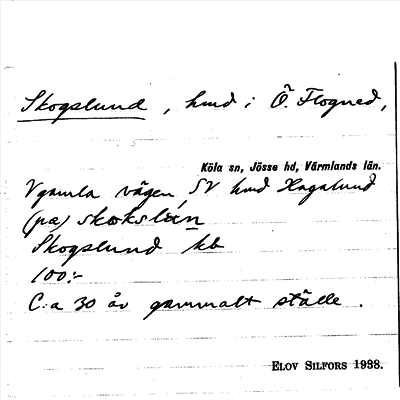 Skogslund, hmd i Ö. Flogned,
Köla sn, Jösse hd, Värmlands län.
V gamla vägen, SV hmd Hagalund
(på) skokslùn
Skogslund kb
100:-
C:a 30 år gammalt ställe.
ELOV SILFORS 1938.